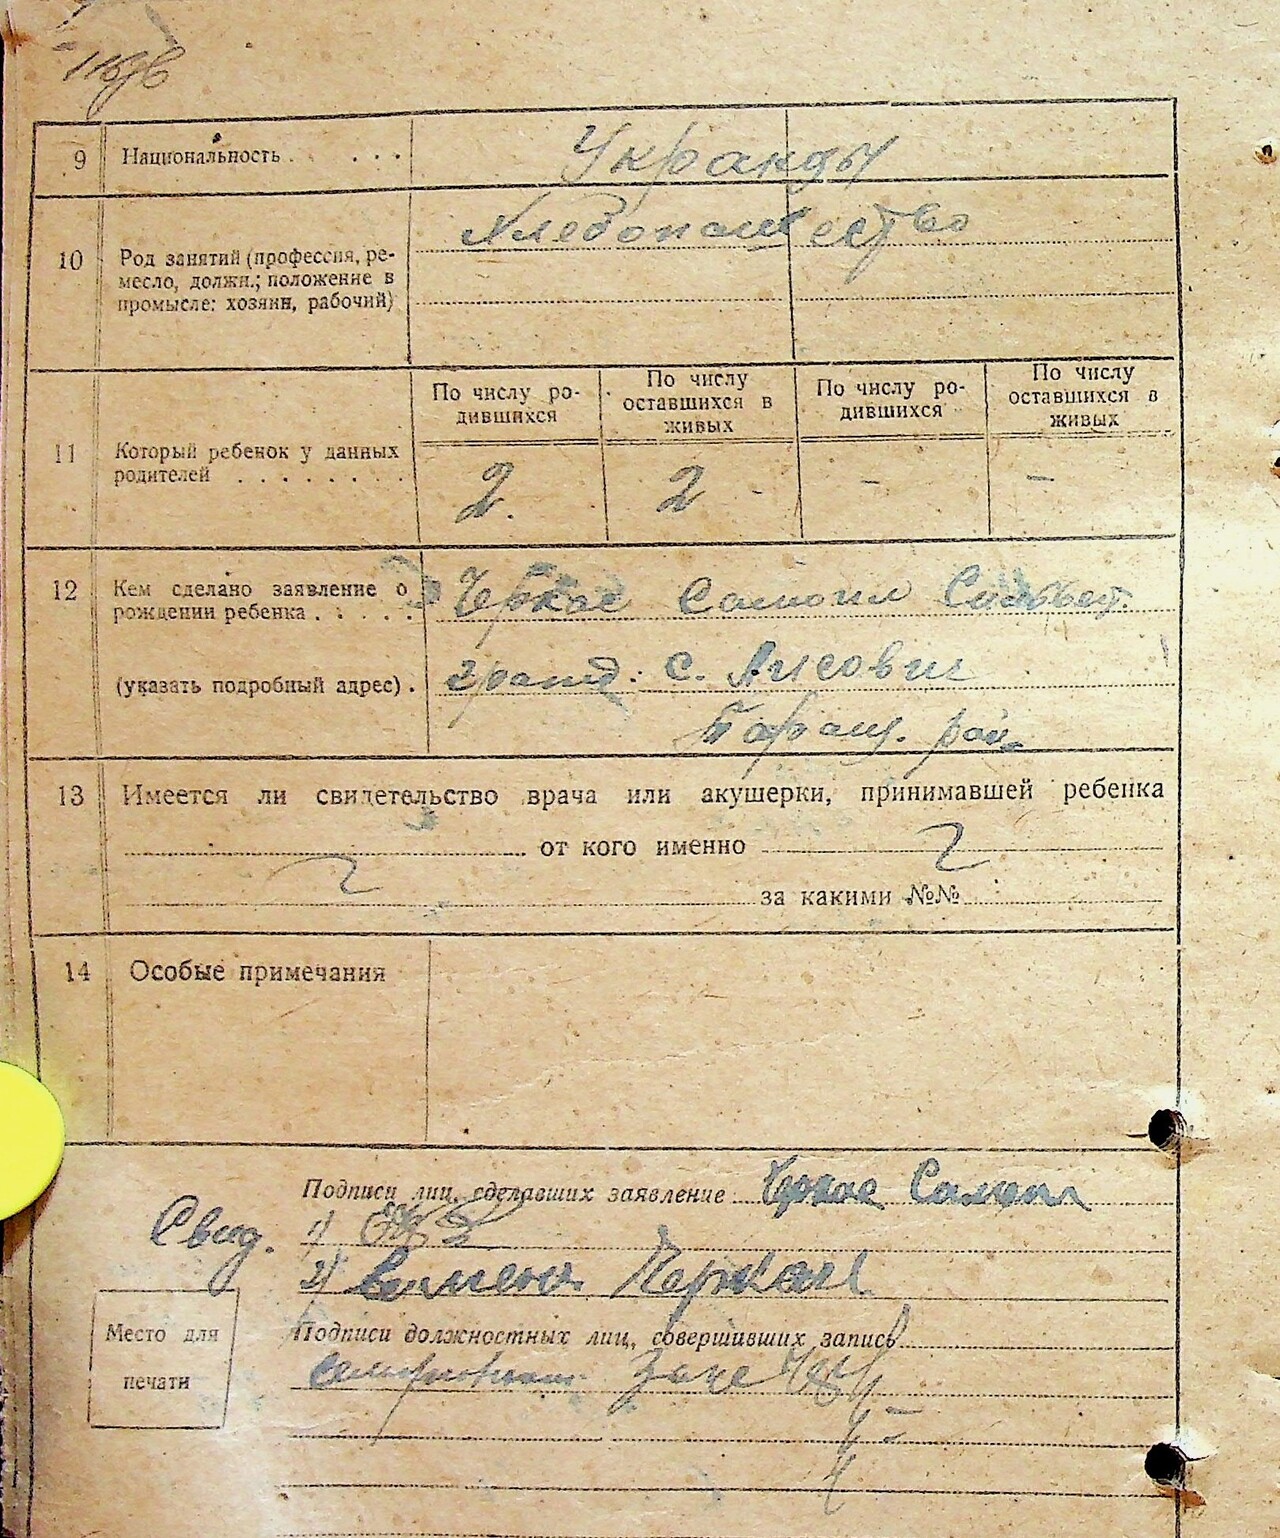 9 Национальность . . . .
Укранцы
10 Род занятий (профессия, ре-
месло, должн.; положение в
промысле: хозяин, рабочий)
Хлебопашество
По числу ро-
дившихся
По числу
оставшихся в
живых
По числу ро-
дившихся
По числу
оставшихся в
живых
11 Который ребенок у данных
родителей . . . . . . . .
2. 2 - - -
12 Кем сделано заявление о
рождении ребенка . . . . .
Черкас Самоил
(указать подробный адрес) .
с. Лисович
Таращ. рай
13 Имеется ли свидетельство врача или акушерки, принимавшей ребенка
от кого именно
за какими №№
14 Особые примечания
Подписи лиц, сделавших заявление Черкас Самоил
Свид. 1)
2) Черкас
Место для
печати
Подписи должностных лиц, совершивших запись